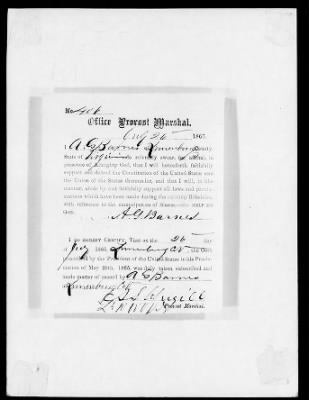 No 406
Office Provost Marshal,
July 26 1865.
I A. G. Barnes Lunenburg County
State of Virginia do solemnly swear, or affirm, in
presence of Almighty God, that I will henceforth faithfully
support and defend the Constitution of the United States and
the Union of the States thereunder, and that I will, in like
manner, abide by and faithfully support all laws and procla-
mations which have been made during the existing Rebellion
with reference to the emancipation of Slaves.—SO HELP ME
GOD.
A. G. Barnes
I DO HEREBY CERTIFY, That on the 26 day
of July 1865, Lunenburg the Oath
prescribed by the President of the United States in his Procla-
mation of May 29th, 1865, was duly taken, subscribed and
made matter of record by A G Barnes
Lunenburg
Provost Marshal.